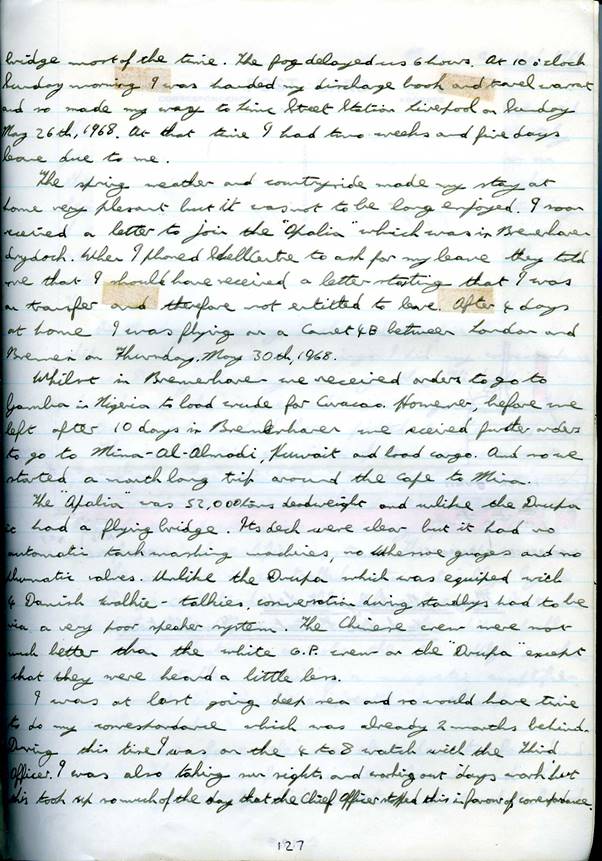 bridge most of the time. The fog delayed us 6 hours. At 10 o'clock
Sunday morning I was handed my discharge book and travel warrant
and so made my way to Lime Street Station Liverpool on Sunday
May 26th, 1968. At that time I had two weeks and five days
leave due to me.
The spring weather and countryside made my stay at
home very plesant but it was not to be long enjoyed. I soon
received a letter to join the "Opalia" which was in Bremerhaven
drydock. When I phoned Shell Centre to ask for my leave they told
me that I should have received a letter stating that I was
on transfer and therefore not entitled to leave. After 4 days
at home I was flying on a Comet 4B between London and
Bremen on Thursday, May 30th, 1968.
Whilst in Bremerhaven we received orders to go to
Gamba in Nigeria to load crude for Curacao. However, before we
left after 10 days in Bremerhaven we received further orders
to go to Mina-Al-Ahmadi, Kuwait and load cargo. And so we
started a month long trip around the Cape to Mina.
The "Opalia" was 52,000 tons deadweight and unlike the Drupa
it had a flying bridge. Its deck were clear but it had no
automatic tank washing machines, no Whessoe gauges and no
phumatic valves. Unlike the Drupa which was equiped with
4 Danish walkie-talkies, conversation during standbys had to be
via a very poor speaker system. The Chinese crew were not
much better than the white G.P. crew on the "Drupa" except
that they were heard a little less.
I was at last going deep sea and so would have time
to do my correspondance which was already 2 months behind.
During this time I was on the 4 to 8 watch with the Third
Officer. I was also taking sun sights and working out days work but
this took up so much of the day that the Chief Officer stopped this in favour of correspondance
127